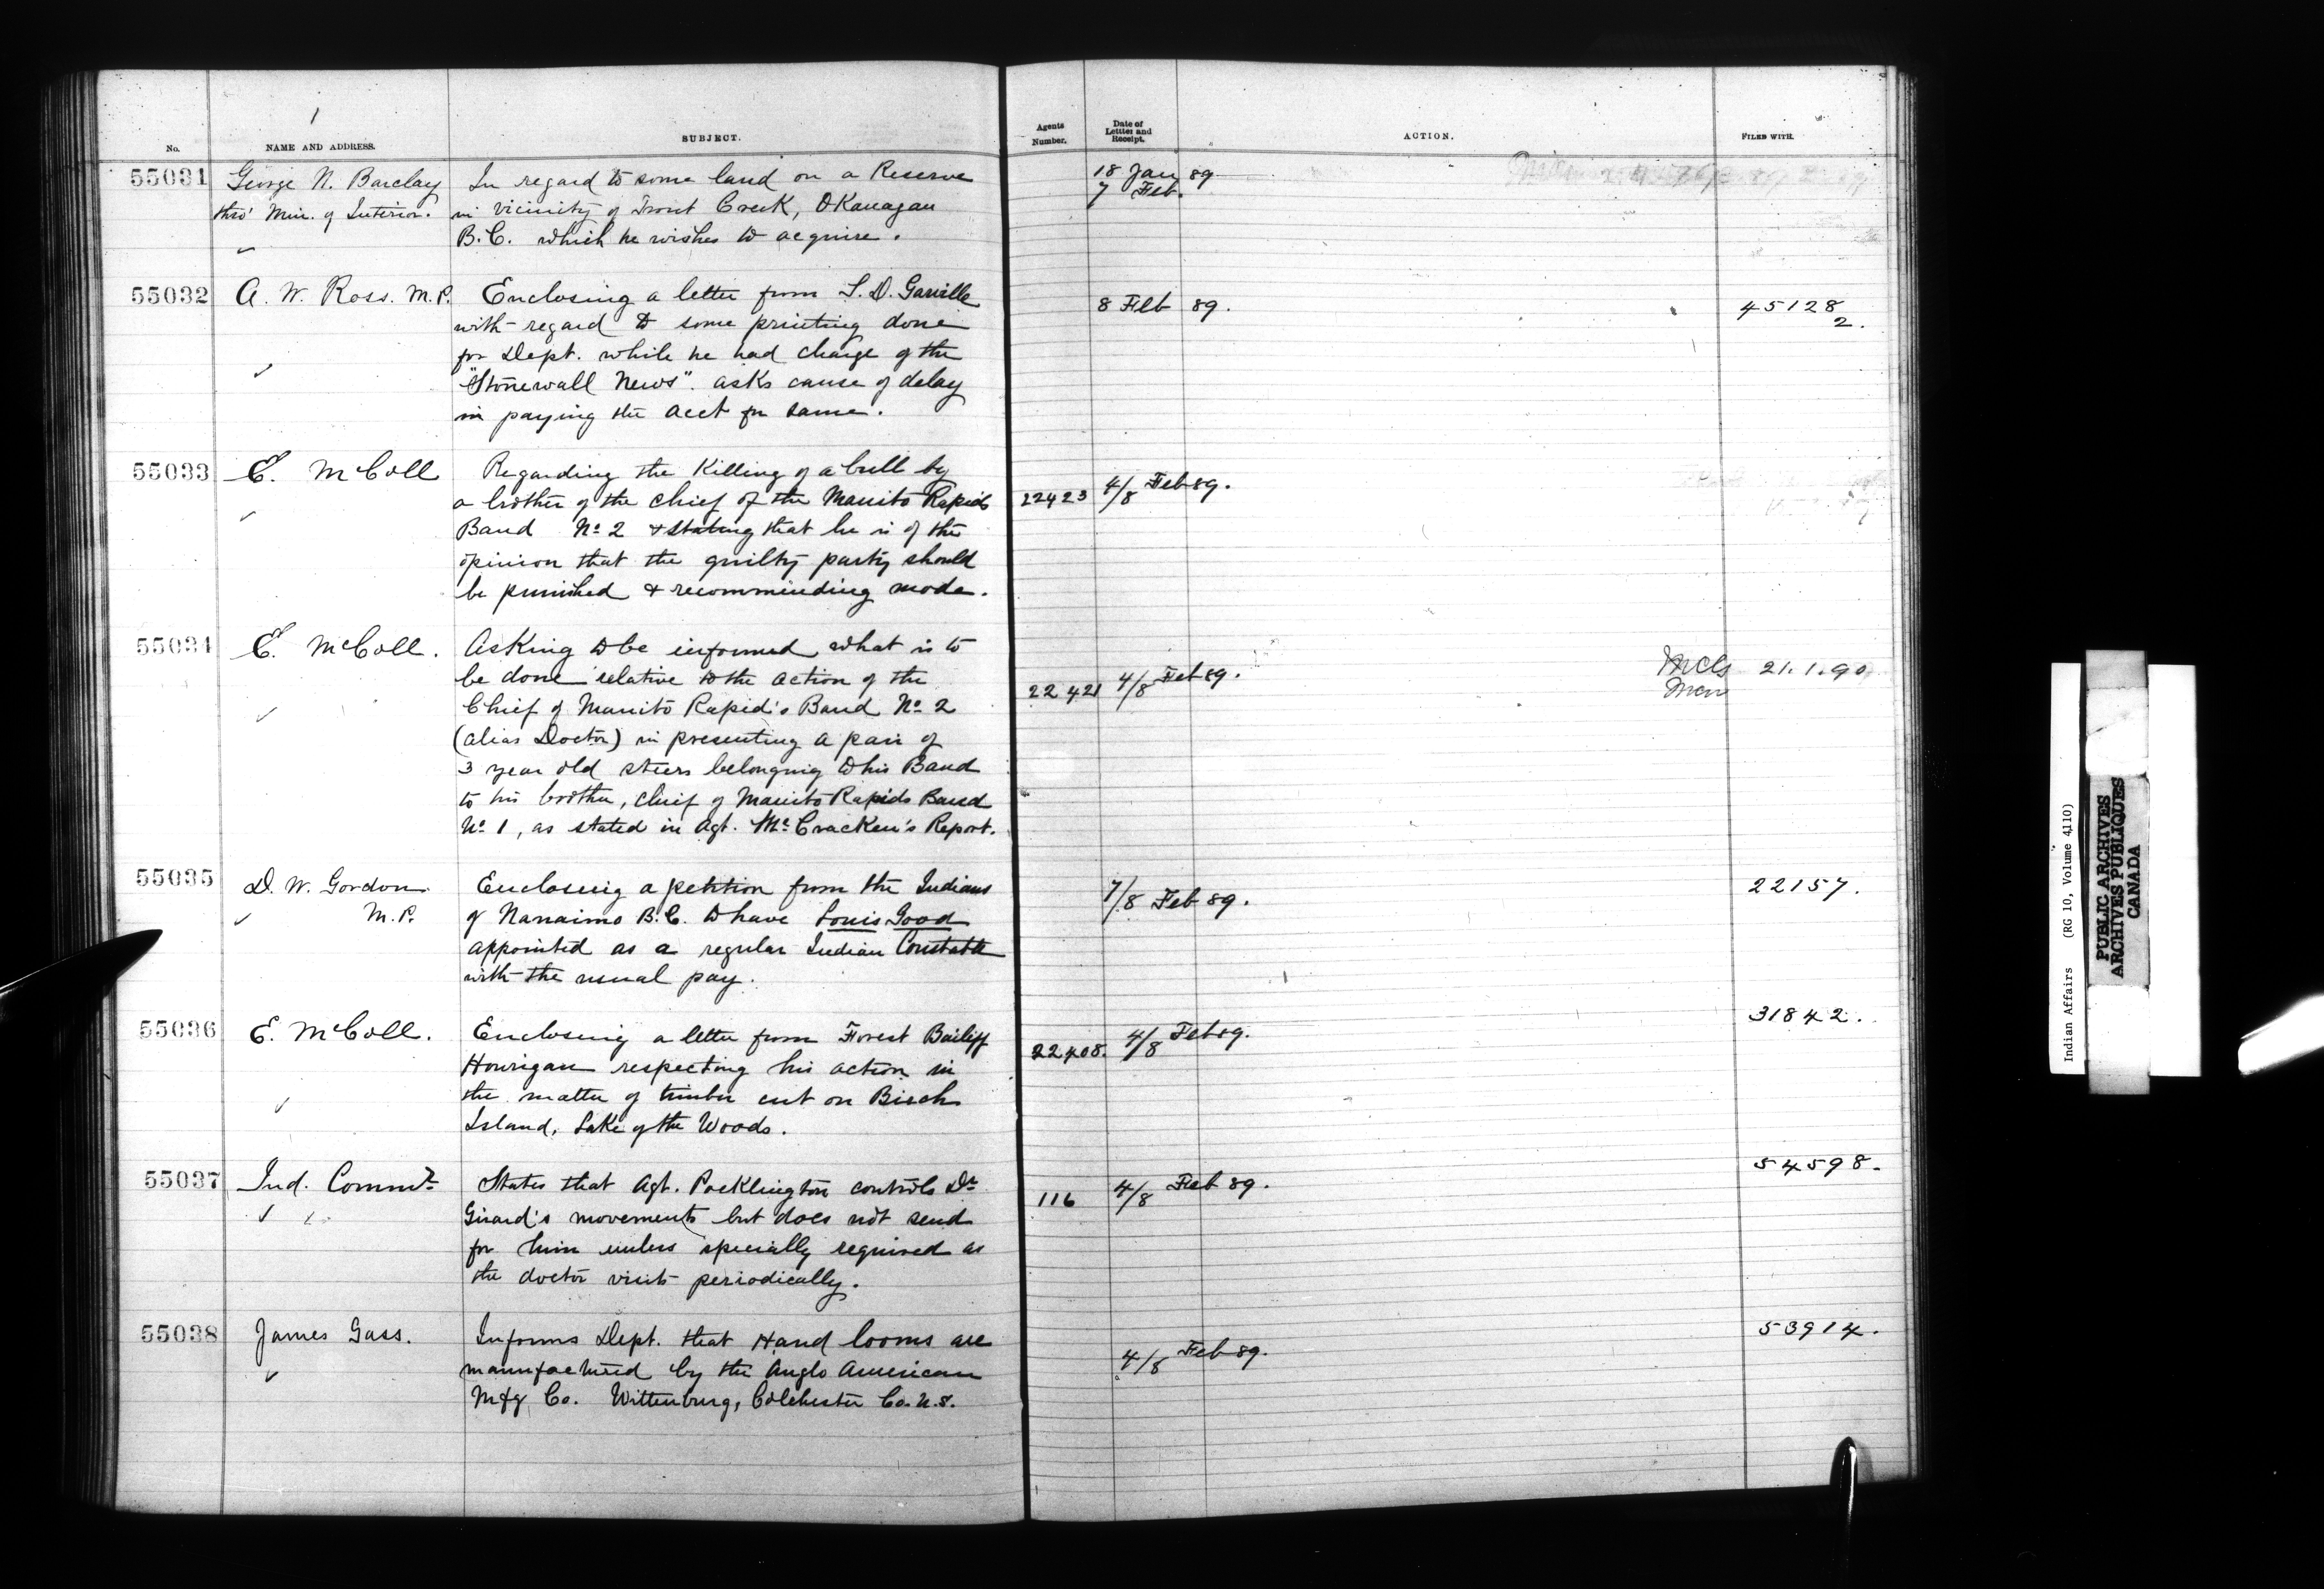 No. NAME AND ADDRESS. SUBJECT. Agents Number. Date of Letter and Receipt. ACTION. FILED WITH.
55031 George N. Barclay In regard to some land on a Reserve 18 Jan 89
thro' Min. of Interior. in vicinity of Trout Creek, OKanagan 7 Feb.
B.C. which he wishes to acquire.
55032 A. W. Ross. M.P. Enclosing a letter from S. D. 8 Feb 89. 45128
with regard to some printing done 2.
for Dept. while he had charge of the
"Stonewall News". asks cause of delay
in paying the acct for same.
55033 E. McColl Regarding the Killing of a bull by 4/8 Feb 89.
a brother of the Chief of the Manito Rapids 22423
Band No 2 & stating that he is of the
opinion that the guilty party should
be punished & recomminding mode.
55034 E. McColl. Asking to be informed what is to
be done relative to the action of the 22421 4/8 Feb 89. 21.1.90
Chief of Manito Rapid's Band No 2
(alias Doctor) in presenting a pair of
3 year old steers belonging to his Band
to his brother, Chief of Manito Rapids Band
No 1, as stated in Agt. McCracken's Report.
55035 D. W. Gordon Enclosing a petition from the Indians 7/8 Feb 89. 22157.
M.P. of Nanaimo B.C. to have Louis Good
appointed as a regular Indian Constable
with the usual pay.
55036 E. McColl. Enclosing a letter from Forest Bailiff 22408. 4/8 Feb 89. 31842.
Hourigan respecting his action in
the matter of timber cut on Birch
Island, Lake of the Woods.
55037 Ind. Commr States that Agt. Pocklington controls Dr 116 4/8 Feb 89. 54598.
Girard's movements but does not send
for him unless specially required as
the doctor visits periodically.
55038 James Gass. Informs Dept. that Hand looms are 4/8 Feb 89. 53914.
manufactured by the Anglo American
Mfg Co. Wittenburg, Colchester Co. N.S.
Indian Affairs (RG 10, Volume 4110)
PUBLIC ARCHIVES
ARCHIVES PUBLIQUES
CANADA